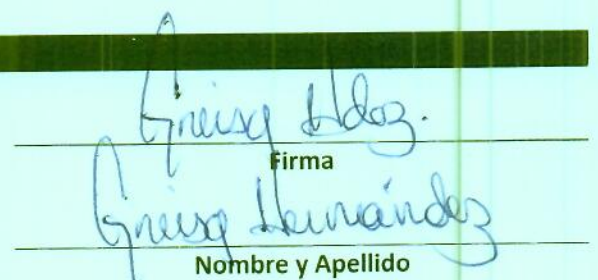 Greisy Hdez.
Firma
Greisy Hernández
Nombre y Apellido